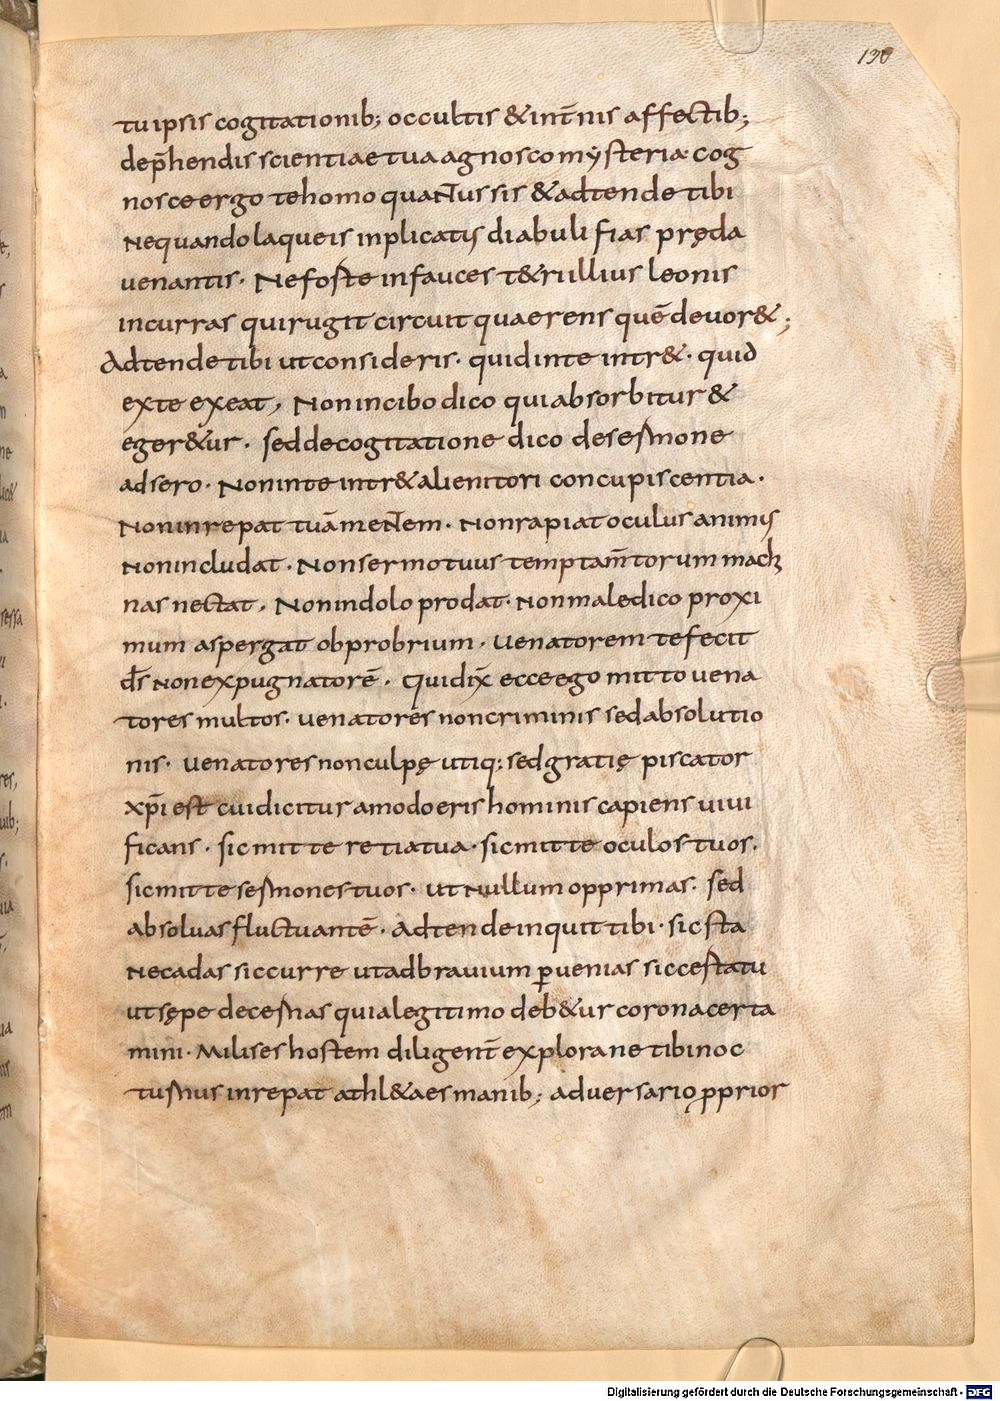 130
tu ipsis cogitationib; occultis & int̄nis affectib;
dep̄hendis scientiae tua agnosco mẏsteria· cog
nosce ergo te homo quantus sis & adtende tibi
Nequando laqueis inplicatis diabuli fias pręda
venantis· Ne foste in fauces t&ri illius leonis
incurras qui rugit circuit quaerens quē devor&;
Adtende tibi ut consideris· quid in te intr&· quid
ex te exeat, Non in cibo dico qui absorbitur &
eger&ur· sed de cogitatione dico de sermone
adsero· Non in te intr& alieni tori concupiscentia·
Non inrepat tuā mentem· Non rapiat oculus animis
Non includat· Non sermo tuus temptam̄torum machi
nas nectat, Non in dolo prodat· Non maledico proxi
mum aspergat obprobrium· venatorem te fecit
d̄s Non expugnatorē· Qui dix̄ ecce ego mitto vena
tores multos· venatores non criminis sed absolutio
nis· venatores non culpę utiq; sed gratię piscator
xp̄i est cui dicitur amodo eris hominis capiens vivi
ficans· sic mitte retia tua· sic mitte oculos tuos·
sic mitte sermones tuos· ut Nullum opprimas· sed
absolvas fluctuantē· Adtende inquit tibi· sic sta
Ne cadas sic curre ut ad bravium ꝑvenias sic cestatu
ut sępe decernas quia legitimo deb&ur corona certa
mini· Milis es hostem diligent̄ explora ne tibi noc
turnus inrepat athl&a es manib; adversario ꝓprior
Digitalisierung gefördert durch die Deutsche Forschungsgemeinschaft - DFG